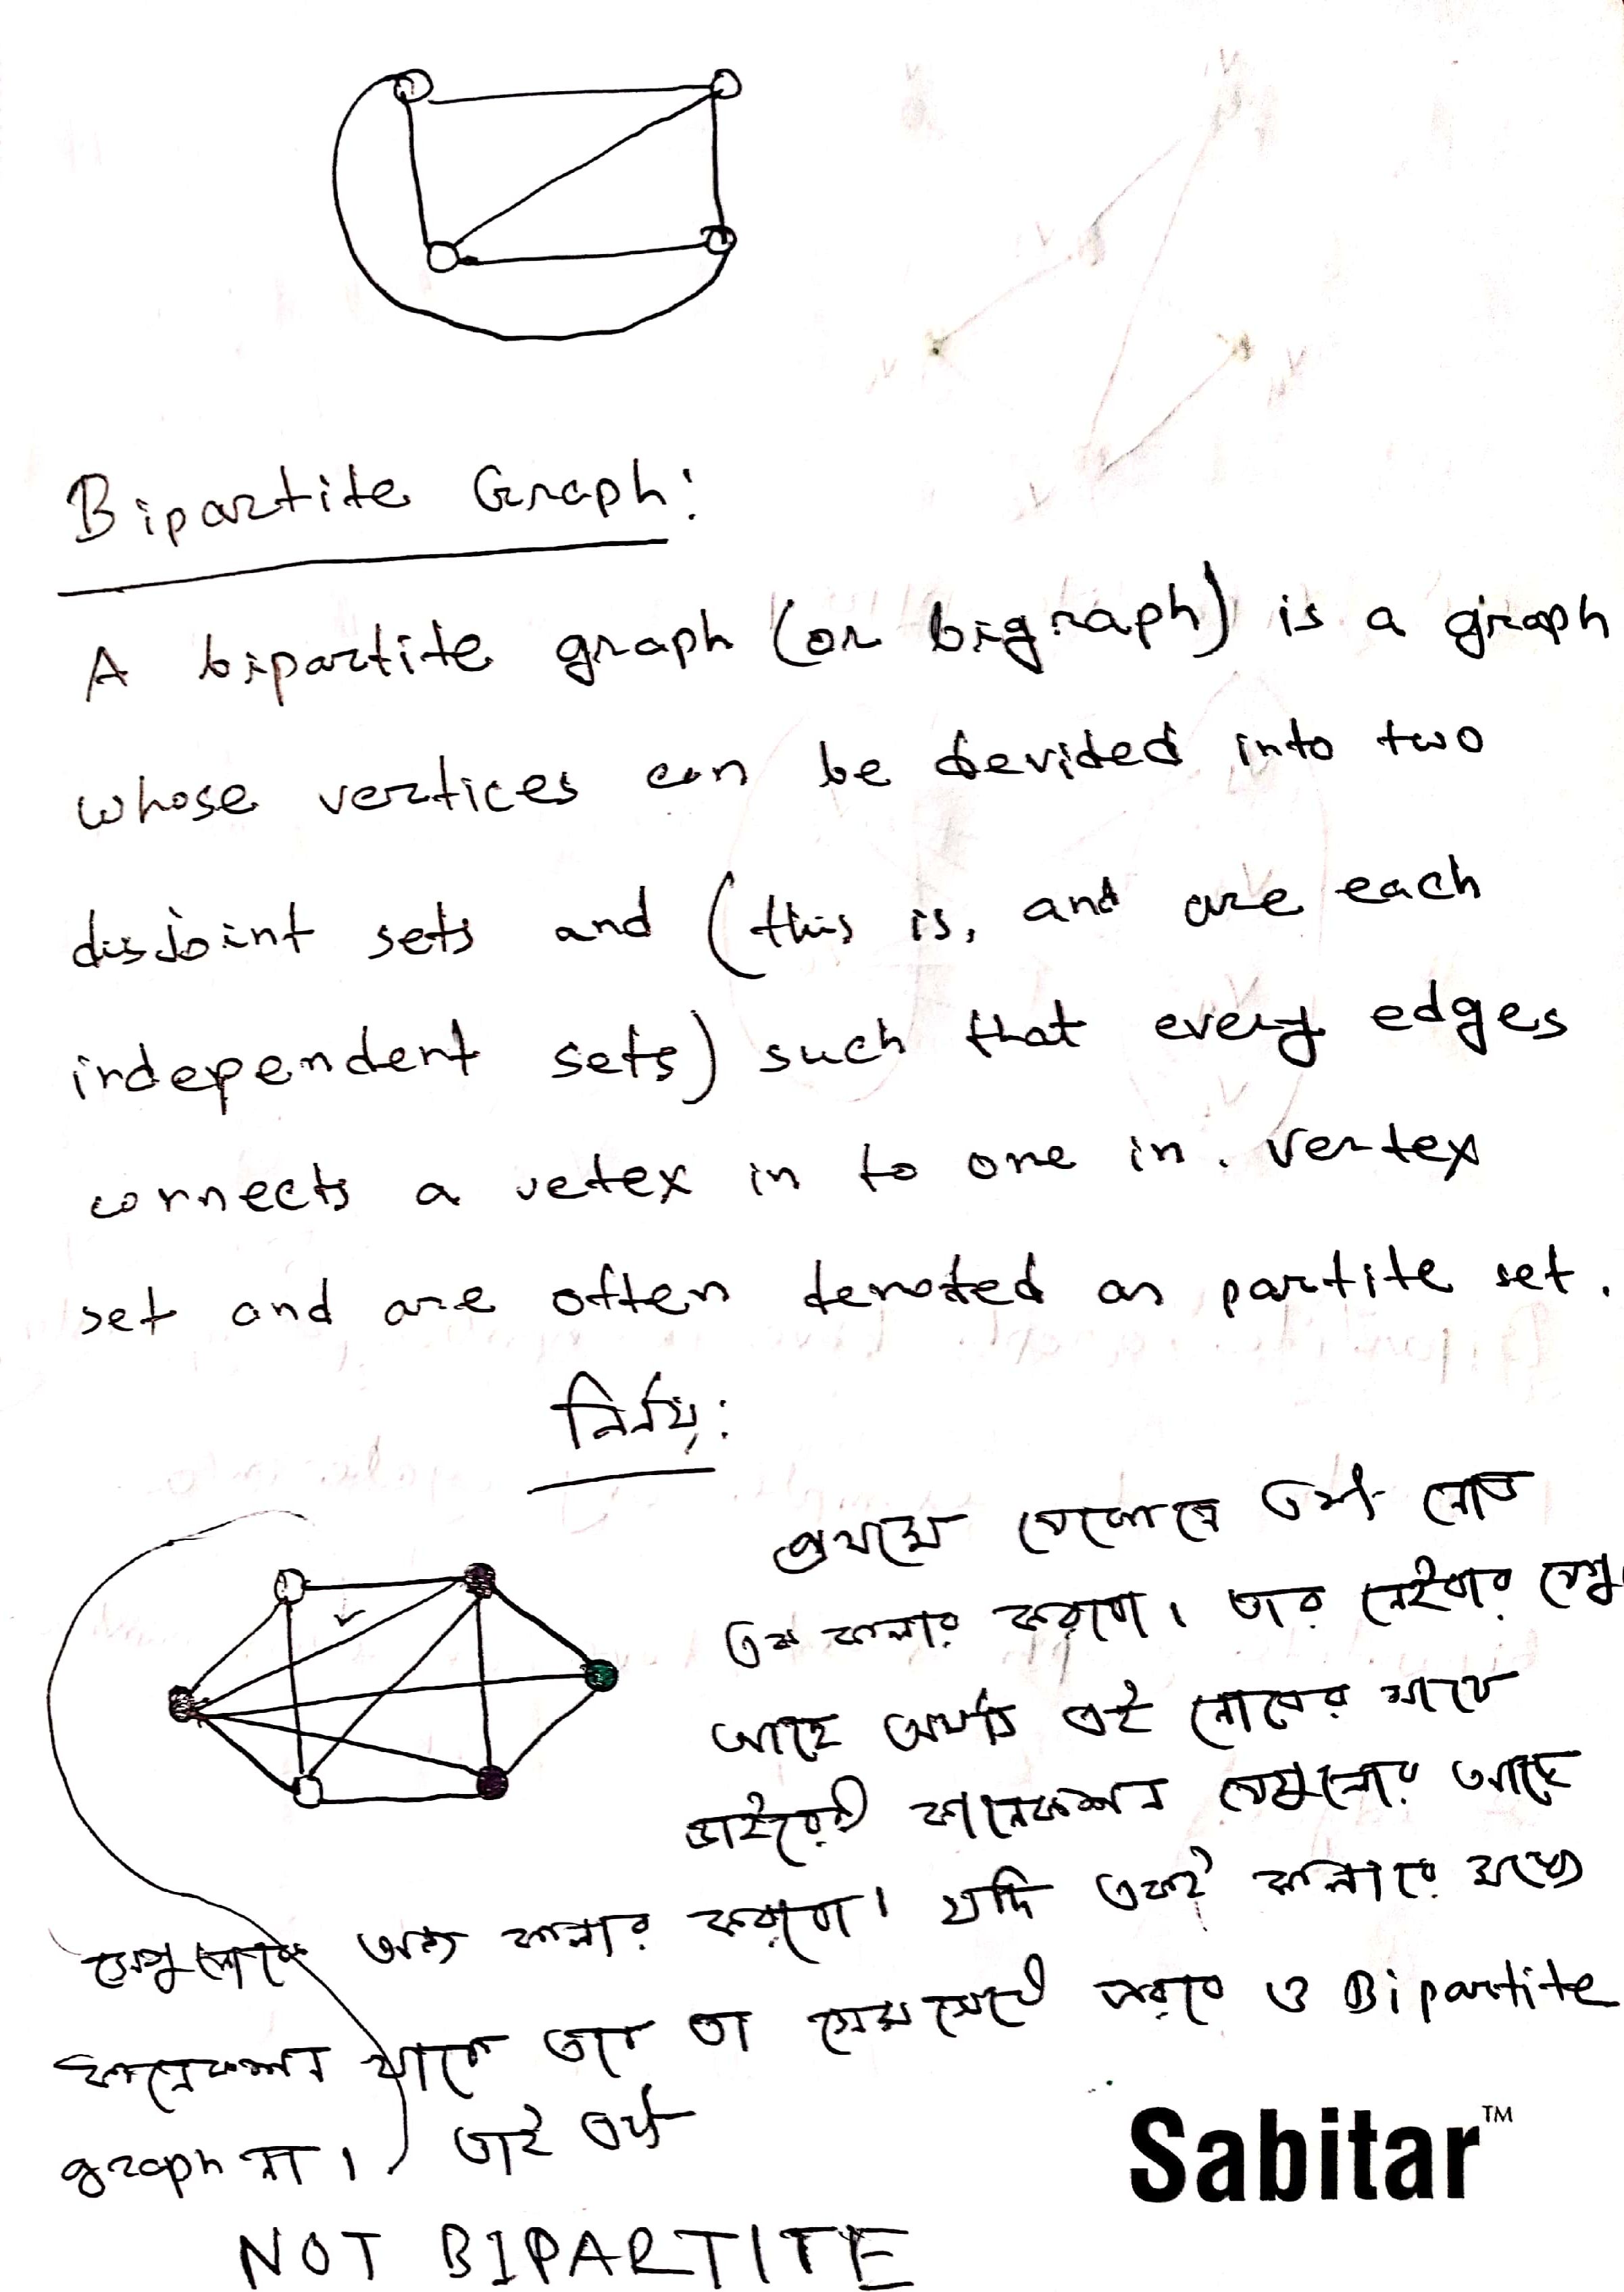 Bipartite Graph:
A bipartite graph (or bigraph) is a graph
whose vertices can be devided into two
disjoint sets and (this is, and are each
independent sets) such that every edges
connects a vetex in to one in. vertex
set and are often denoted as partite set.
নির্ণয়:
প্রথমে যেকোনো একটা নোড
কে কালার করবো। তার নেইবার যেগু
আছে অর্থাৎ এই নোডের সাথে
ডাইরেক্ট কানেকশন যেগুলোর আছে
সেগুলোকে অন্য কালার করবো। যদি একই কালারে মধ্যে
কানেকশন থাকে তবে তা ও Bipartite
graph না। তাই এটা
NOT BIPARTITE
Sabitar™